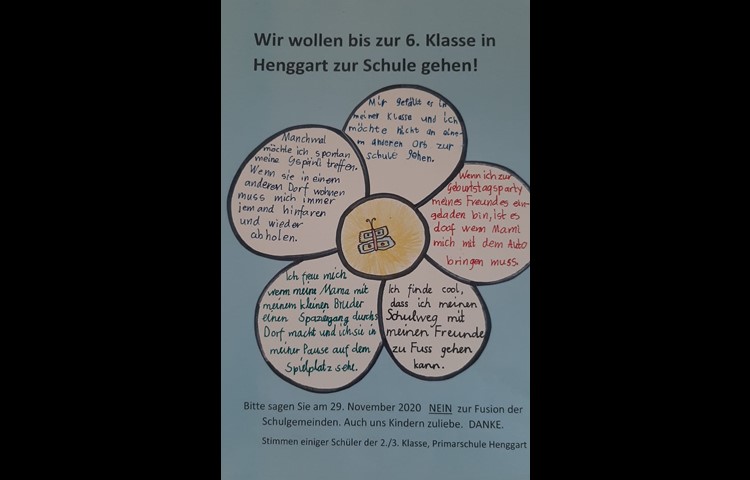 Wir wollen bis zur 6. Klasse in
Henggart zur Schule gehen!
Mir gefällt es in
meiner Klasse und ich
möchte nicht an eine-
m anderen Ort zur
schule gehen.
Manchmal
möchte ich spontan
meine Gspänli treffen.
Wenn sie in einem
anderen Dorf wohnen
muss mich immer
jemand hinfaren
und wieder
abholen.
Wenn ich zur
Geburtstagsparty
meines Freundes ein-
geladen bin, ist es
doof wenn Mami
mich mit dem Auto
bringen muss.
Ich freue mich
wenn meine Mama mit
meinem kleinen Brüder
einen Spaziergang durchs
Dorf macht und ich sie in
meiner Pause auf dem
Spielplatz sehe.
Ich finde cool,
dass ich meinen
Schulweg mit
meinen Freunde
zu Fuss gehen
kann.
Bitte sagen Sie am 29. November 2020 NEIN zur Fusion der
Schulgemeinden. Auch uns Kindern zuliebe. DANKE.
Stimmen einiger Schüler der 2./3. Klasse, Primarschule Henggart